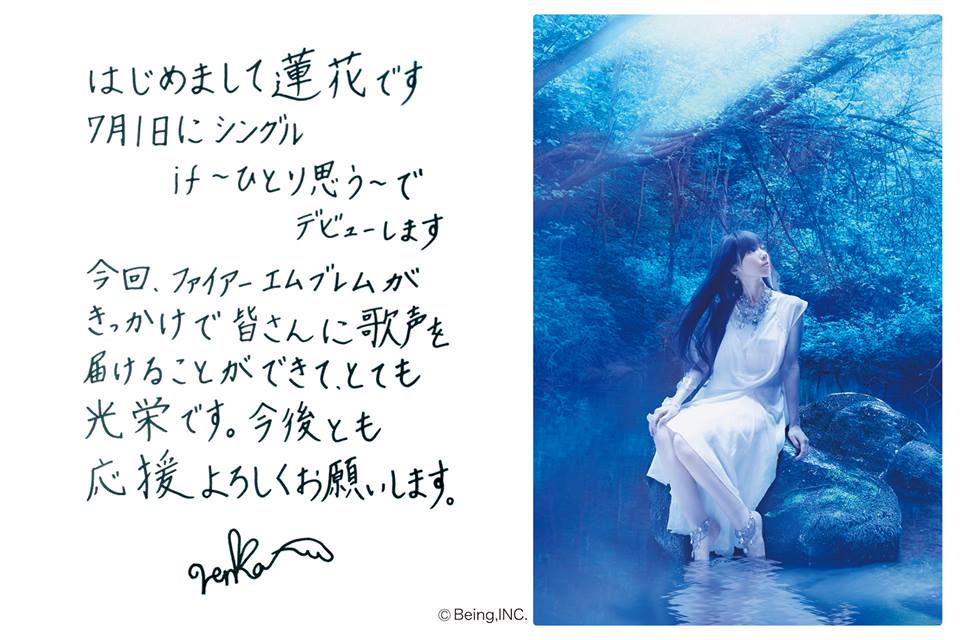 はじめまして蓮花です
7月1日にシングル
if～ひとり思う～で
デビューします
今回、ファイアーエムブレムが
きっかけで皆さんに歌声を
届けることができて、とても
光栄です。今後とも
応援よろしくお願いします。
renka
© Being,INC.